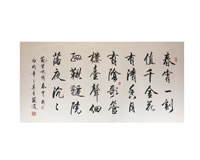 春宵一刻
值千金花
有清香月
有陰歌管
樓臺聲細
細鞦韆院
落夜沉沉